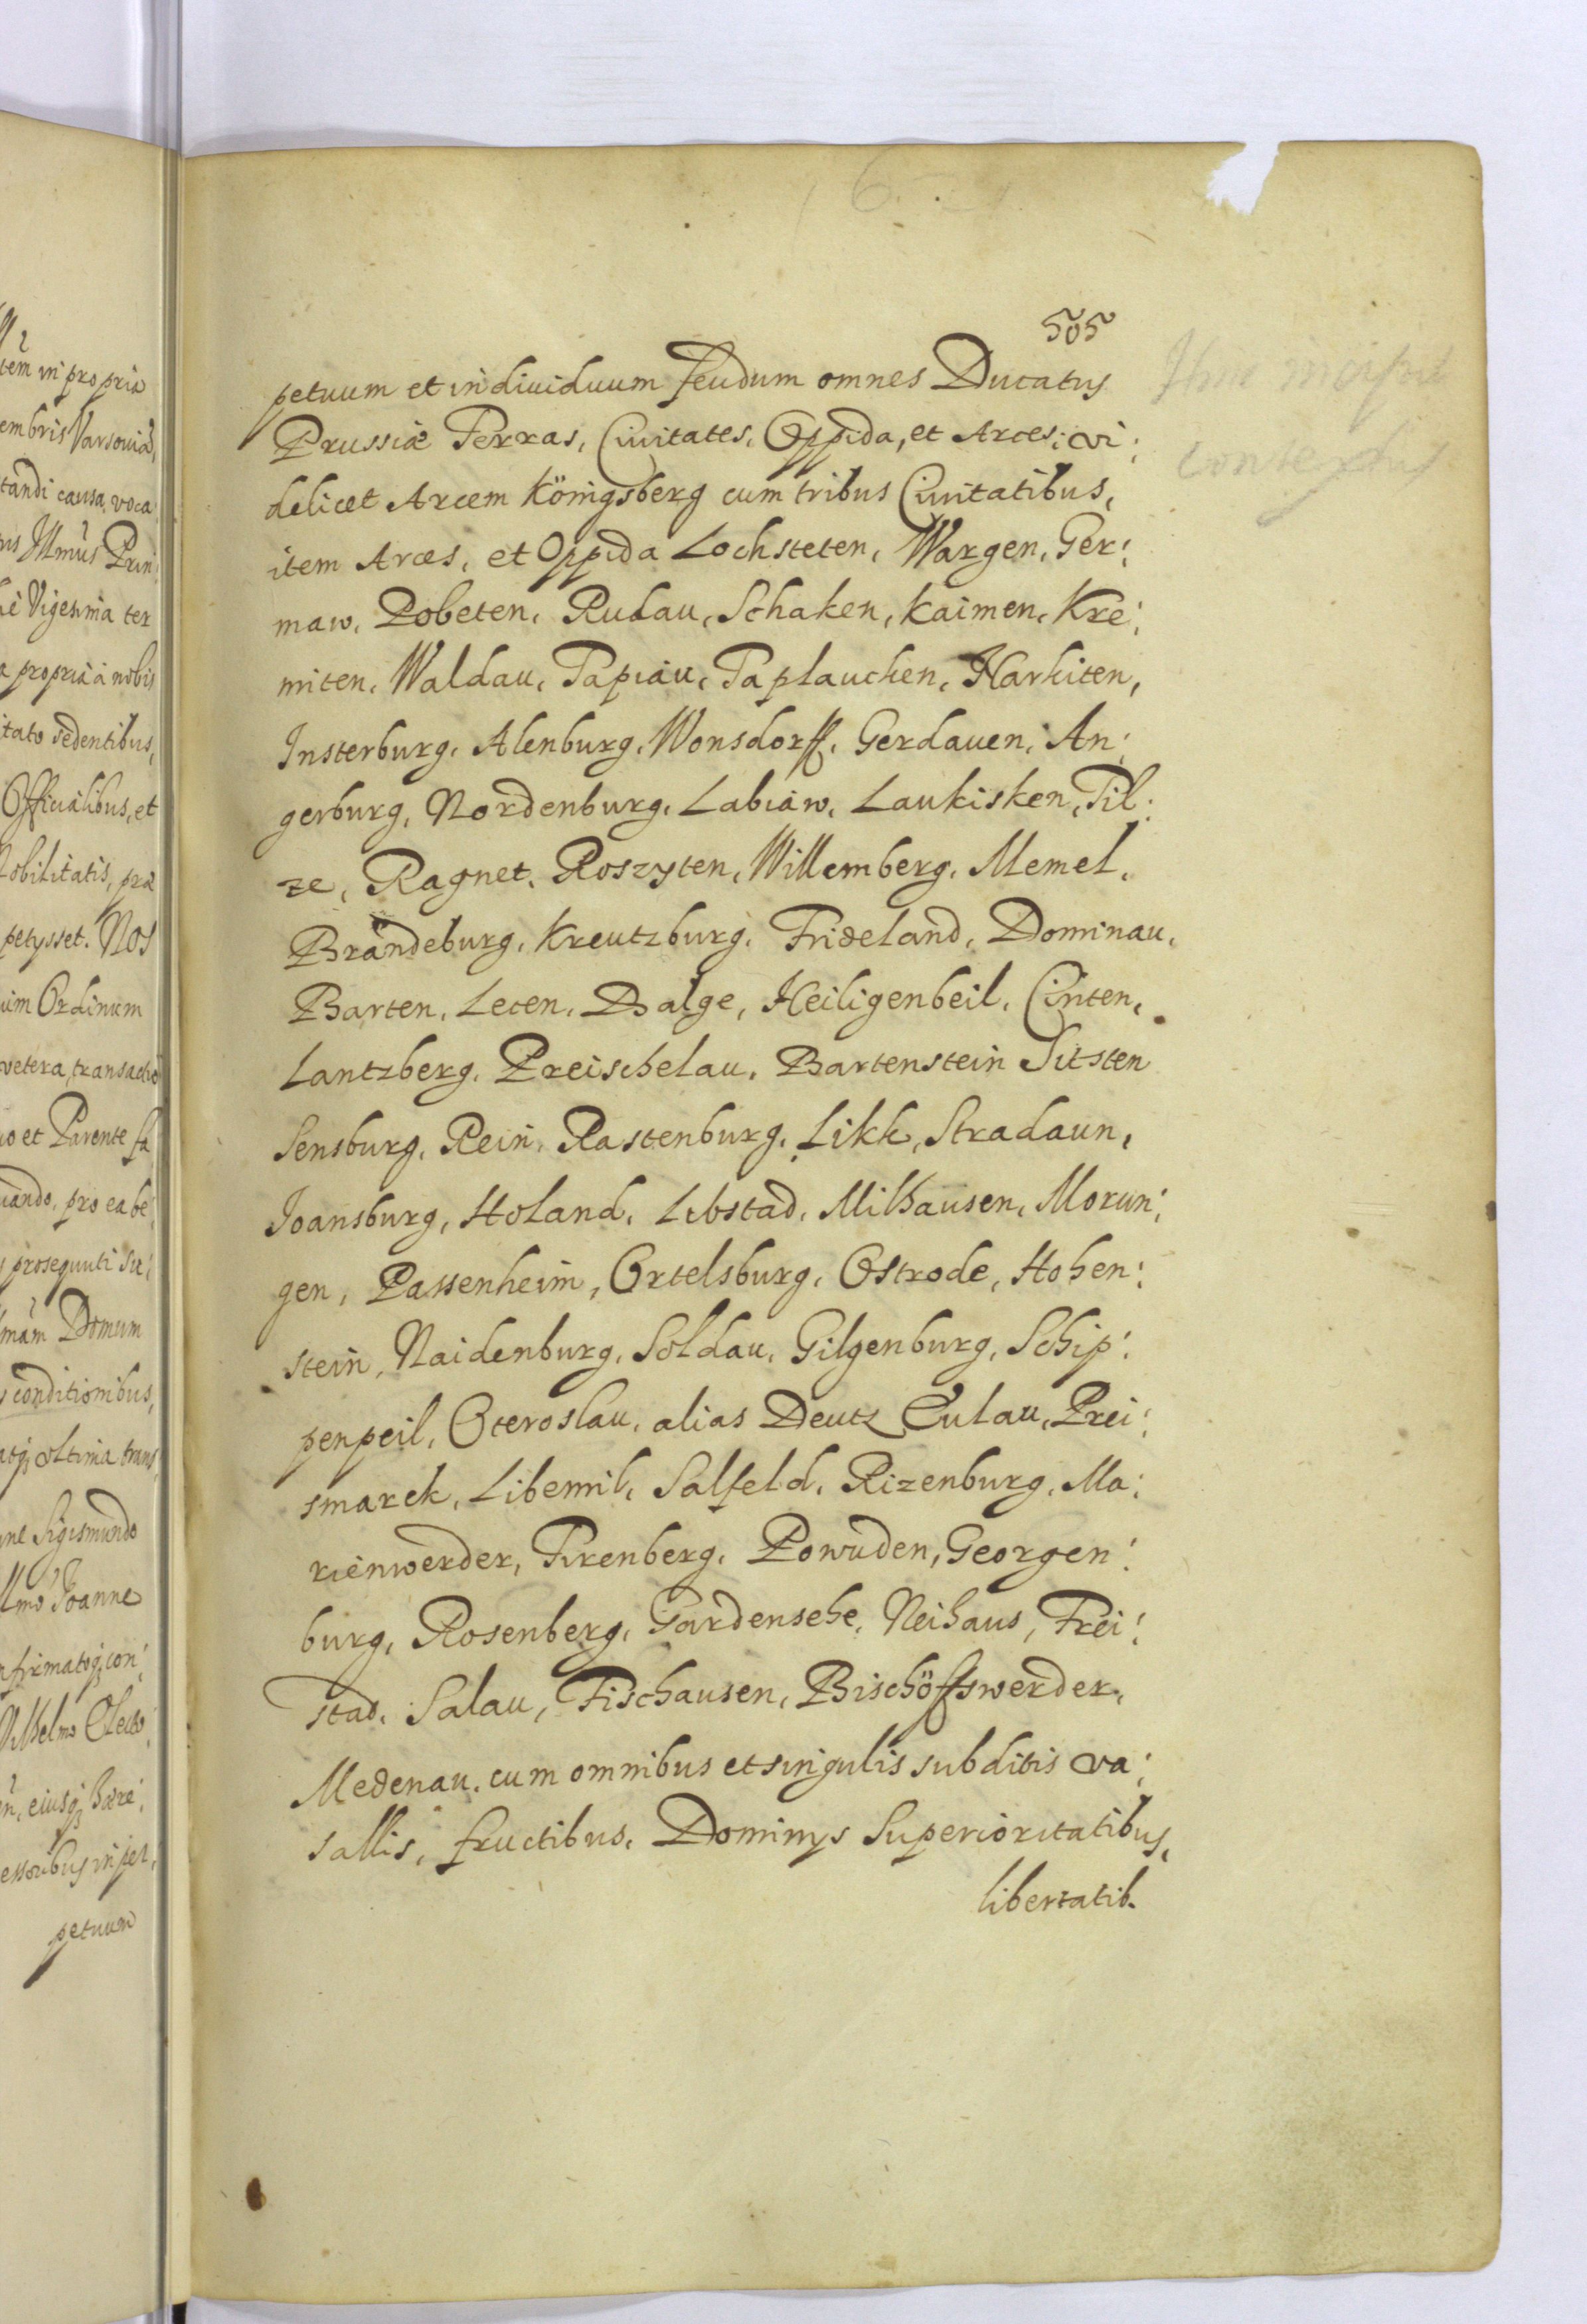 505
petuum et indiuiduum feudum omnes Ducatus
Prussiæ Terras, Ciuitates, Oppida, et Arces: vi:
delicet Arcem Königsberg cum tribus Ciuitatibus,
item Arces, et Oppida Lochsteten, Wargen, Ger:
maw, Pobeten, Rudau, Schaken, Kaimen, Kre:
miten, Waldau, Tapiau, Taplauchen, Narkiten,
Insterburg, Alenburg, Wonsdorff, Gerdauen, An:
gerburg, Nordenburg, Labiaw, Laukisken, Til:
ze, Ragnet, Roszyten, Willemberg, Memel,
Brandeburg, Kreutzburg, Frideland, Dominau,
Barten, Leten, Balge, Heiligenbeil, Cinten,
Lantzberg, Preischelau, Bartenstein Sitsten
Sensburg, Rein, Rastenburg, Likk, Stradaun,
Joansburg, Holand, Libstad, Milhausen, Morun:
gen, Passenheim, Ortelsburg, Ostrode, Hohen:
stein, Naidenburg, Soldau, Gilgenburg, Schip:
penpeil, Oteroslau, alias Deutz Eulau, Prei:
smarck, Libemil, Salfeld, Rizenburg, Ma:
rienwerder, Tirenberg, Powuden, Georgen:
burg, Rosenberg, Gardensehe, Neihaus, Frei:
stad, Salau, Fischausen, Bischöffswerder,
Medenau, cum omnibus et singulis subditis va:
sallis, fructibus, Dominys Superioritatibus,
libertatib.
incipit
contextus
tem in propria
embris Varsouiã
tandi causa, voca
Illmus Prin:
Vigesima ter
a propria à nobis
itato sedentibus,
Officialibus, et
Nobilitatis, præ
petysset. Nos
Ordinum
vetera, transactio
et Parente fa
pro ea be:
prosequuti su:
Domum
conditionibus,
vltima trans
Sigismundo
Joanne
con:
Electo:
petuum